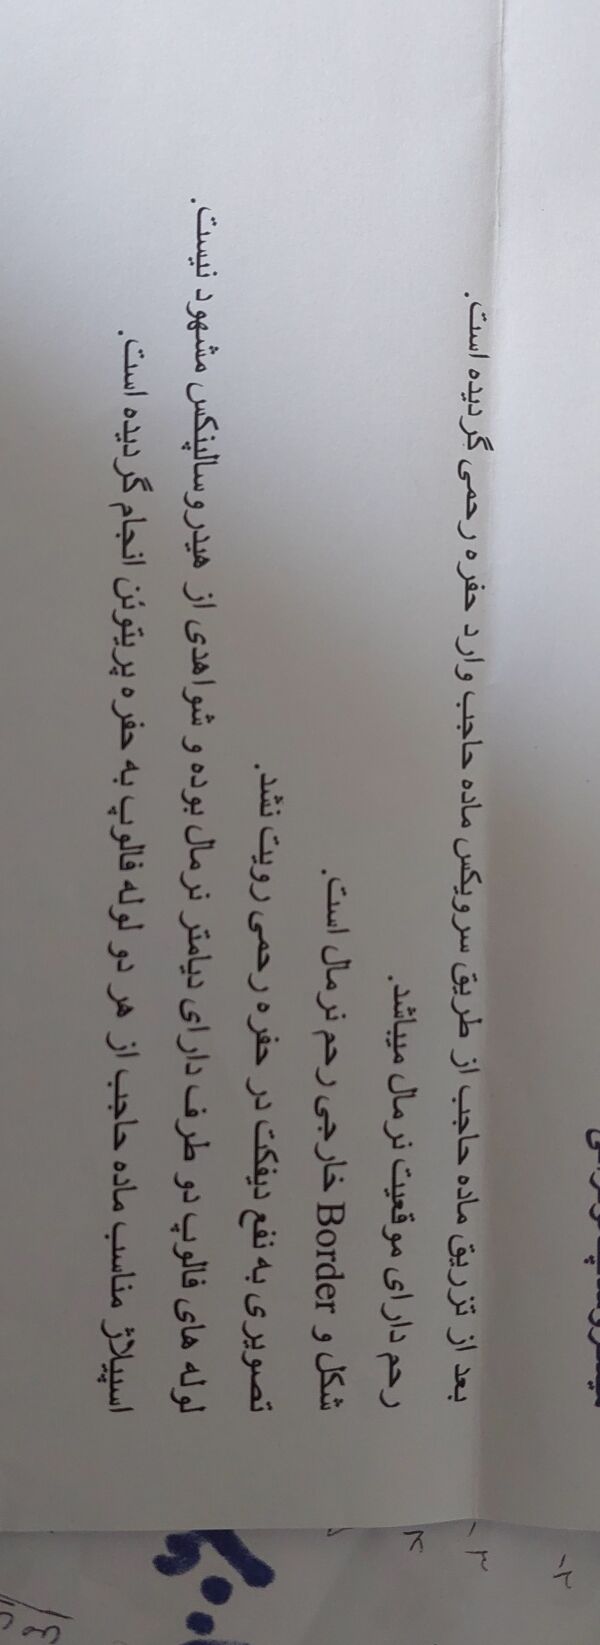 بعد از تزریق ماده حاجب از طریق سرویکس ماده حاجب وارد حفره رحمی گردیده است.
رحم دارای موقعیت نرمال میباشد.
شکل و Border خارجی رحم نرمال است.
تصویری به نفع دیفکت در حفره رحمی رویت نشد.
لوله های فالوپ دو طرف دارای دیامتر نرمال بوده و شواهدی از هیدروسالپنکس مشهود نیست.
اسپیلاژ مناسب ماده حاجب از هر دو لوله فالوپ به حفره پریتوئن انجام گردیده است.